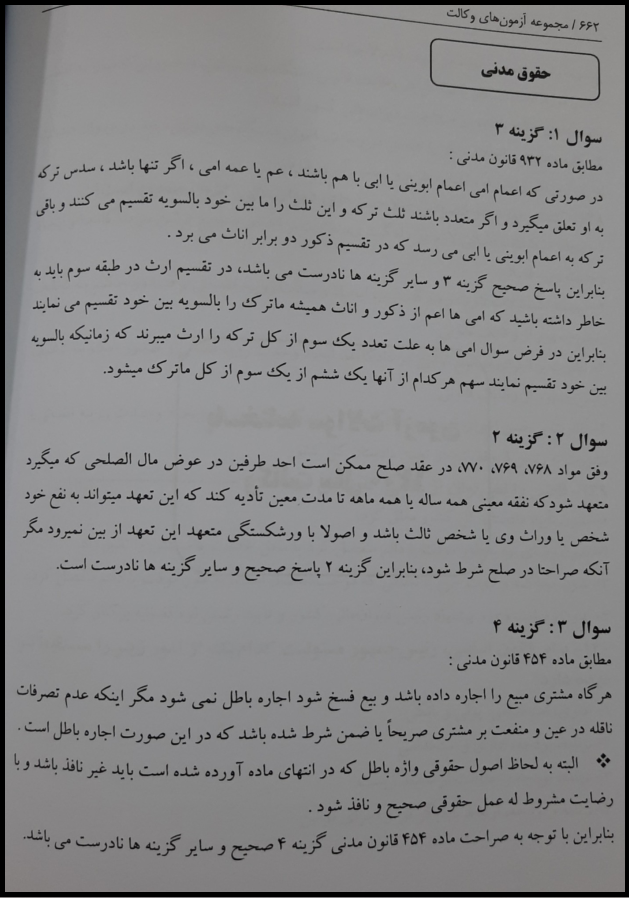 ۶۶۲ / مجموعه آزمون‌های وکالت
حقوق مدنی
سوال ۱: گزینه ۳
مطابق ماده ۹۳۲ قانون مدنی :
در صورتی که اعمام امی اعمام ابوینی یا ابی با هم باشند ، عم یا عمه امی ، اگر تنها باشد ، سدس ترکه
به او تعلق میگیرد و اگر متعدد باشند ثلث ترکه و این ثلث را ما بین خود بالسویه تقسیم می کنند و باقی
ترکه به اعمام ابوینی یا ابی می رسد که در تقسیم ذکور دو برابر اناث می برد .
بنابراین پاسخ صحیح گزینه ۳ و سایر گزینه ها نادرست می باشد، در تقسیم ارث در طبقه سوم باید به
خاطر داشته باشید که امی ها اعم از ذکور و اناث همیشه ماترک را بالسویه بین خود تقسیم می نمایند
بنابراین در فرض سوال امی ها به علت تعدد یک سوم از کل ترکه را ارث میبرند که زمانیکه بالسویه
بین خود تقسیم نمایند سهم هرکدام از آنها یک ششم از یک سوم از کل ماترک میشود.
سوال ۲: گزینه ۲
وفق مواد ۷۶۸، ۷۶۹، ۷۷۰، در عقد صلح ممکن است احد طرفین در عوض مال الصلحی که میگیرد
متعهد شودکه نفقه معینی همه ساله یا همه ماهه تا مدت معین تأدیه کند که این تعهد میتواند به نفع خود
شخص یا وراث وی یا شخص ثالث باشد و اصولا با ورشکستگی متعهد این تعهد از بین نمیرود مگر
آنکه صراحتا در صلح شرط شود، بنابراین گزینه ۲ پاسخ صحیح و سایر گزینه ها نادرست است.
سوال ۳: گزینه ۴
مطابق ماده ۴۵۴ قانون مدنی :
هرگاه مشتری مبیع را اجاره داده باشد و بیع فسخ شود اجاره باطل نمی شود مگر اینکه عدم تصرفات
ناقله در عین و منفعت بر مشتری صریحاً یا ضمن شرط شده باشد که در این صورت اجاره باطل است .
❖ البته به لحاظ اصول حقوقی واژه باطل که در انتهای ماده آورده شده است باید غیر نافذ باشد و با
رضایت مشروط له عمل حقوقی صحیح و نافذ شود .
بنابراین با توجه به صراحت ماده ۴۵۴ قانون مدنی گزینه ۴ صحیح و سایر گزینه ها نادرست می باشد.